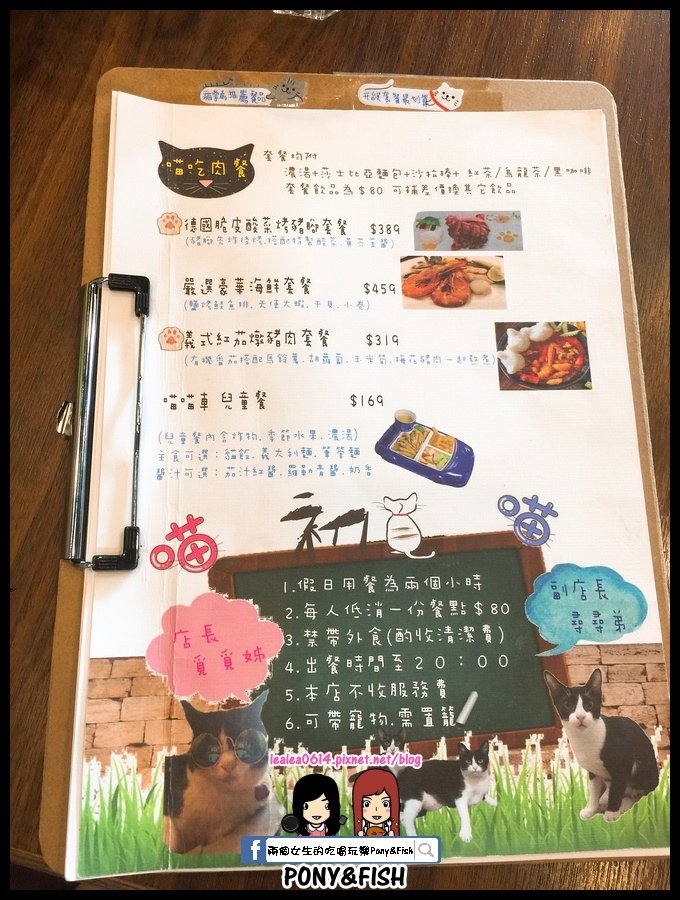 店長推薦餐品
升級套餐最划算
喵吃肉餐
套餐均附
濃湯+莎士比亞麵包+沙拉棒+紅茶/烏龍茶/黑咖啡
套餐飲品為$80可補差價換其它飲品
德國脆皮酸菜烤豬腳套餐 $389
(豬腳先炸後烤.搭配特製酸菜.黃芥茉醬)
嚴選豪華海鮮套餐 $459
(鹽烤鮭魚排.天使大蝦.干貝.小卷)
義式紅茄燉豬肉套餐 $319
(有機番茄搭配馬鈴薯.胡蘿蔔.玉米筍.梅花豬肉一起熬煮)
喵喵車兒童餐 $169
(兒童餐內含炸物.季節水果.濃湯)
主食可選：貓飯.義大利麵.筆管麵
醬汁可選：茄汁紅醬.羅勒青醬.奶香
初
喵
喵
1.假日用餐為兩個小時
2.每人低消一份餐點$80
3.禁帶外食(酌收清潔費)
4.出餐時間至20：00
5.本店不收服務費
6.可帶寵物.需置籠
副店長
尋尋弟
店長
覓覓姊
lealea0614.pixnet.net/blog
f 兩個女生的吃喝玩樂Pony&Fish
PONY&FISH